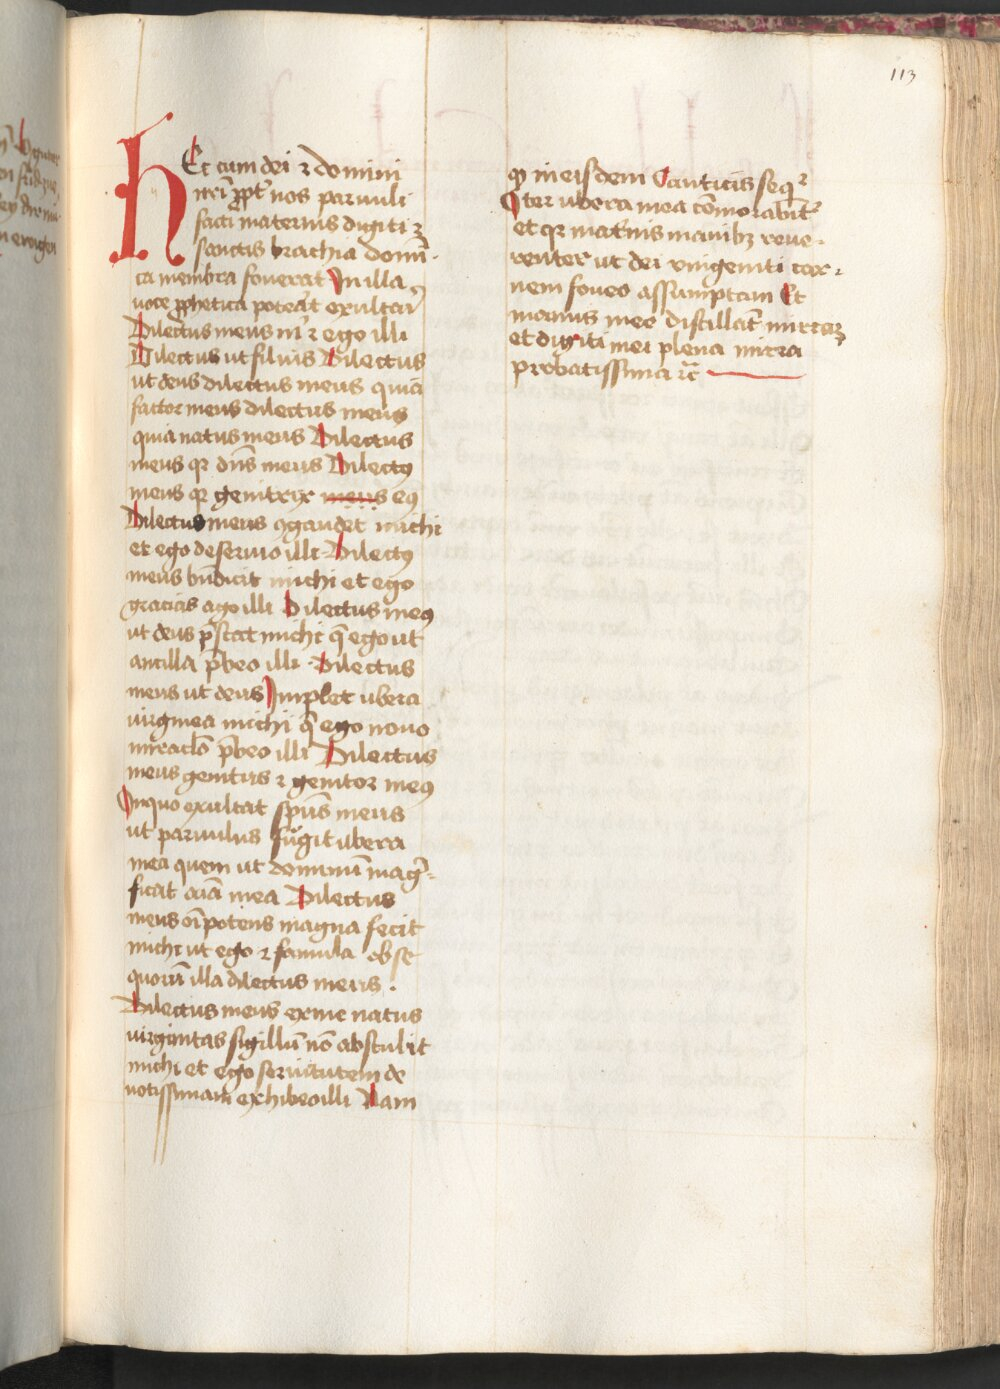 113
HEc cum dei ⁊ domini
nr̄i ꝓpt̄ nos paruuli
facti maternis digitis
sanctis brachia domī-
ca membra fouerat In illa
voce ꝓphetica poterat exultar̄
Dilectus meus m̄ ⁊ ego illi
Dilectus ut filius Dilectus
ut deus dilectus meus quia
factor meus dilectus meus
quia natus meus Dilectus
meus qr dn̄s meus Dilectꝰ
meus qr genitrix meus eiꝰ
Dilectus meus ꝯgaudet michi
et ego deseruio illi Dilectꝰ
meus bn̄dicit michi et ego
gracias ago illi Dilectus meꝰ
ut deus p̄stat michi q̄ ego ut
ancilla p̄beo illi Dilectus
meus ut deus Implet ubera
virginea michi q̄ ego nouo
miraclo p̄beo illi Dilectus
meus genitus ⁊ genitor meꝰ
In quo exultat spūs meus
ut paruulus sugit ubera
mea quem ut dominū mag-
ficat aīa mea Dilectus
meus oīpotens magna fecit
michi ut ego ⁊ famula obse
quorū illa dilectus meus .
Dilectus meus ex me natus
virginitas sigillū nō abstulit
michi et ego seruitutem de
uotissimam exhibeo illi Nam
ꝙ in eisdem Canticis seqr
Inter ubera mea cōmorabit᷑
et qr mat̄nis manibꝫ reue-
renter ut dei vnigeniti car-
nem foueo assumptam Et
manus mee distillāt mirram
et digiti mei plena mirra
probatissima ⁊c̄